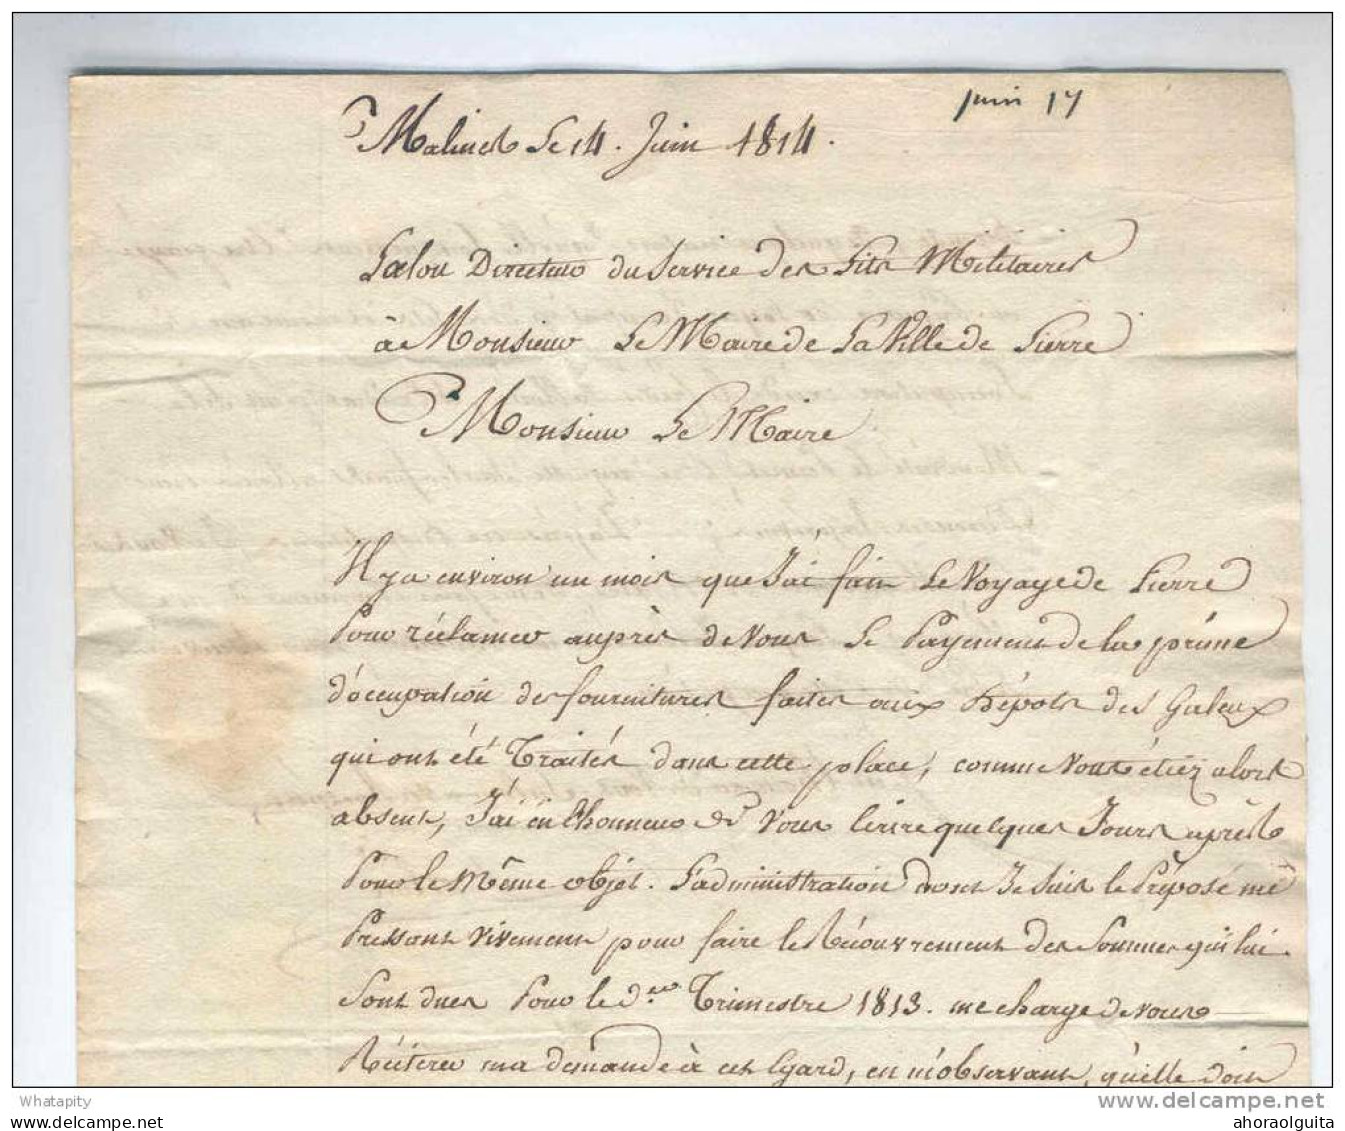 Juin 14
Malines Le 14. Juin 1814.
Directeur du Service des Lits Militaires
à Monsieur Le Maire de La Ville de Lierre
Monsieur Le Maire
Il y a environ un mois que J'ai fait Le Voyage de Lierre
Pour réclamer auprès de Vous Le Payement de la prime
d'occupation des fournitures faites aux Dépots des Galeux
qui ont été Traités dans cette place, comme Vous étiez alors
absent, J'ai eü L'honneur de Vous écrire quelques Jours après
Pour le Même objet. L'administration dont Je Suis le Préposé me
Pressant vivement pour faire le Récouvrement des Sommes qui lui
Sont dues Pour le d.er Trimestre 1813. me charge de vous
Réiterer ma démande à cet Egard, en m'observant, qu'elle doit
Whatapity
www.delcampe.net
My picture.com
ahoraolguita